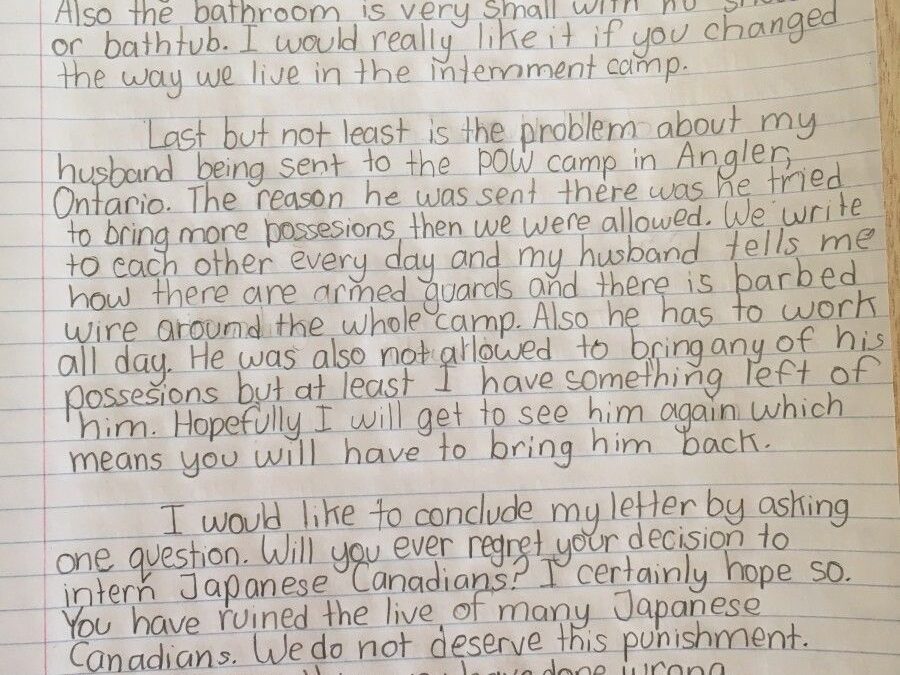 Also the bathroom is very small with no
or bathtub. I would really like it if you changed
the way we live in the internment camp.
Last but not least is the problem about my
husband being sent to the POW camp in Angler,
Ontario. The reason he was sent there was he tried
to bring more possesions then we were allowed. We write
to each other every day and my husband tells me
how there are armed guards and there is barbed
wire around the whole camp. Also he has to work
all day. He was also not allowed to bring any of his
possesions but at least I have something left of
him. Hopefully I will get to see him again which
means you will have to bring him back.
I would like to conclude my letter by asking
one question. Will you ever regret your decision to
intern Japanese Canadians? I certainly hope so.
You have ruined the live of many Japanese
Canadians. We do not deserve this punishment.
you have done wrong